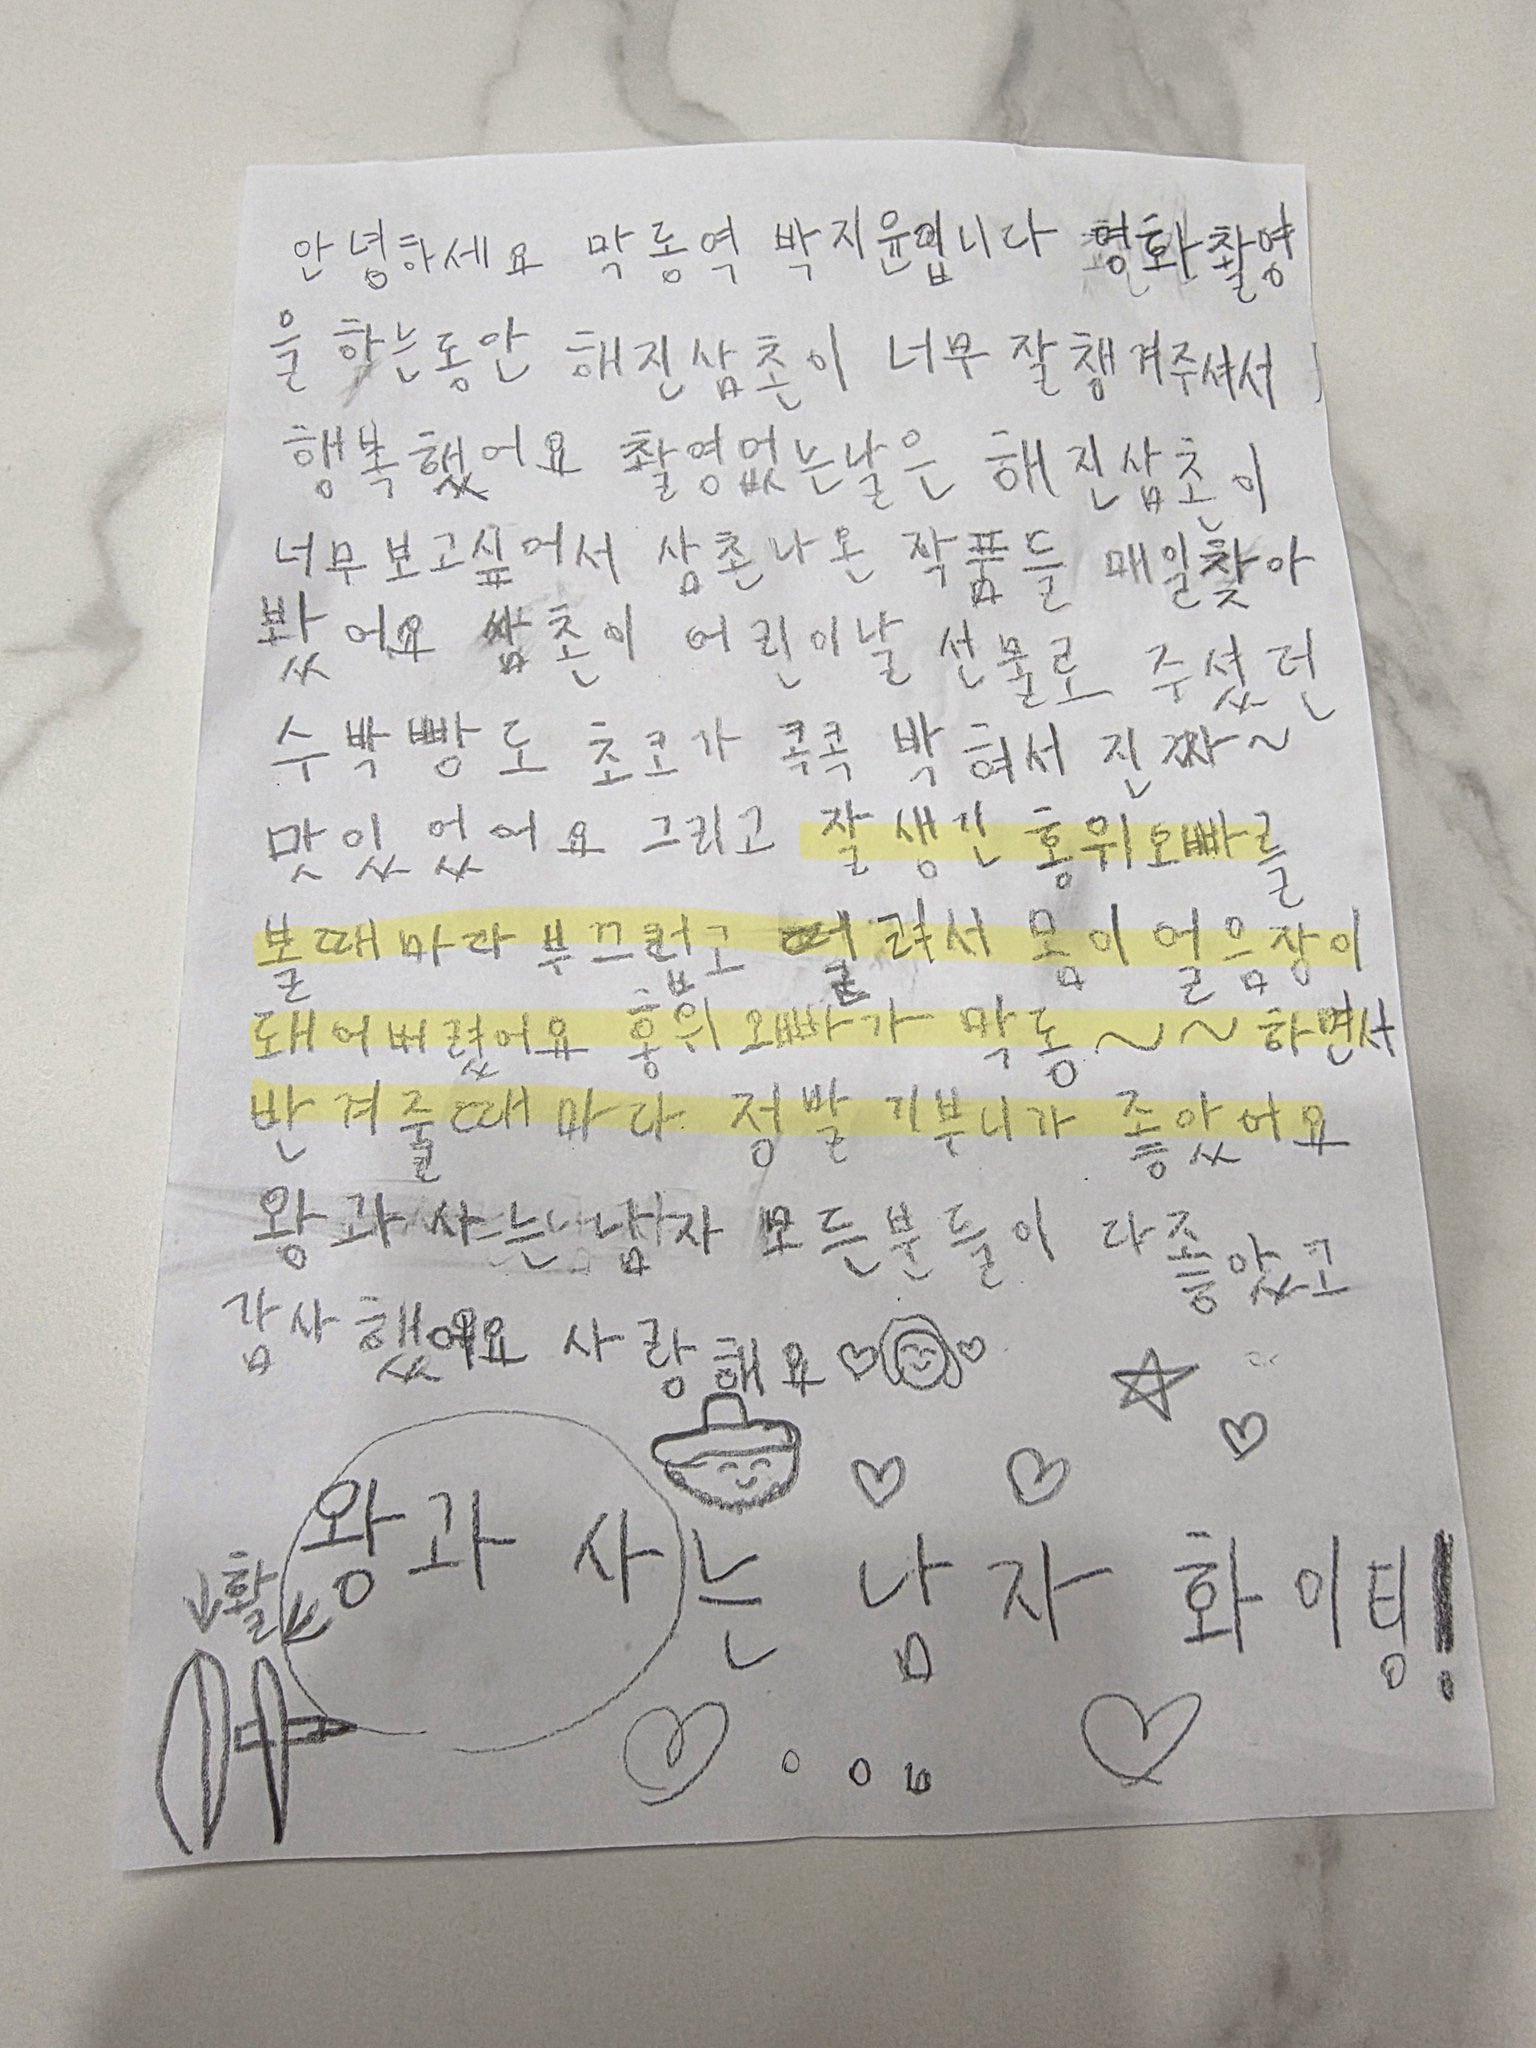 안녕하세요 막동역 박지윤입니다 영화촬영
을 하는동안 해진삼촌이 너무 잘챙겨주셔서
행복했어요 촬영없는날은 해진삼촌이
너무보고싶어서 삼촌나온 작품들 매일찾아
봤어요 쌈촌이 어린이날 선물로 주셨던
수박빵도 초코가 콕콕 박혀서 진짜~
맛있었어요 그리고 잘생긴 홍위오빠를
볼때마다 부끄럽고 떨려서 몸이 얼음장이
돼어버렸어요 홍위오빠가 막동~~하면서
반겨줄때마다 정말 기부니가 좋았어요
왕과 사는남자 모든분들이 다좋았고
감사했어요 사랑해요
왕과 사는 남자 화이팅!
활